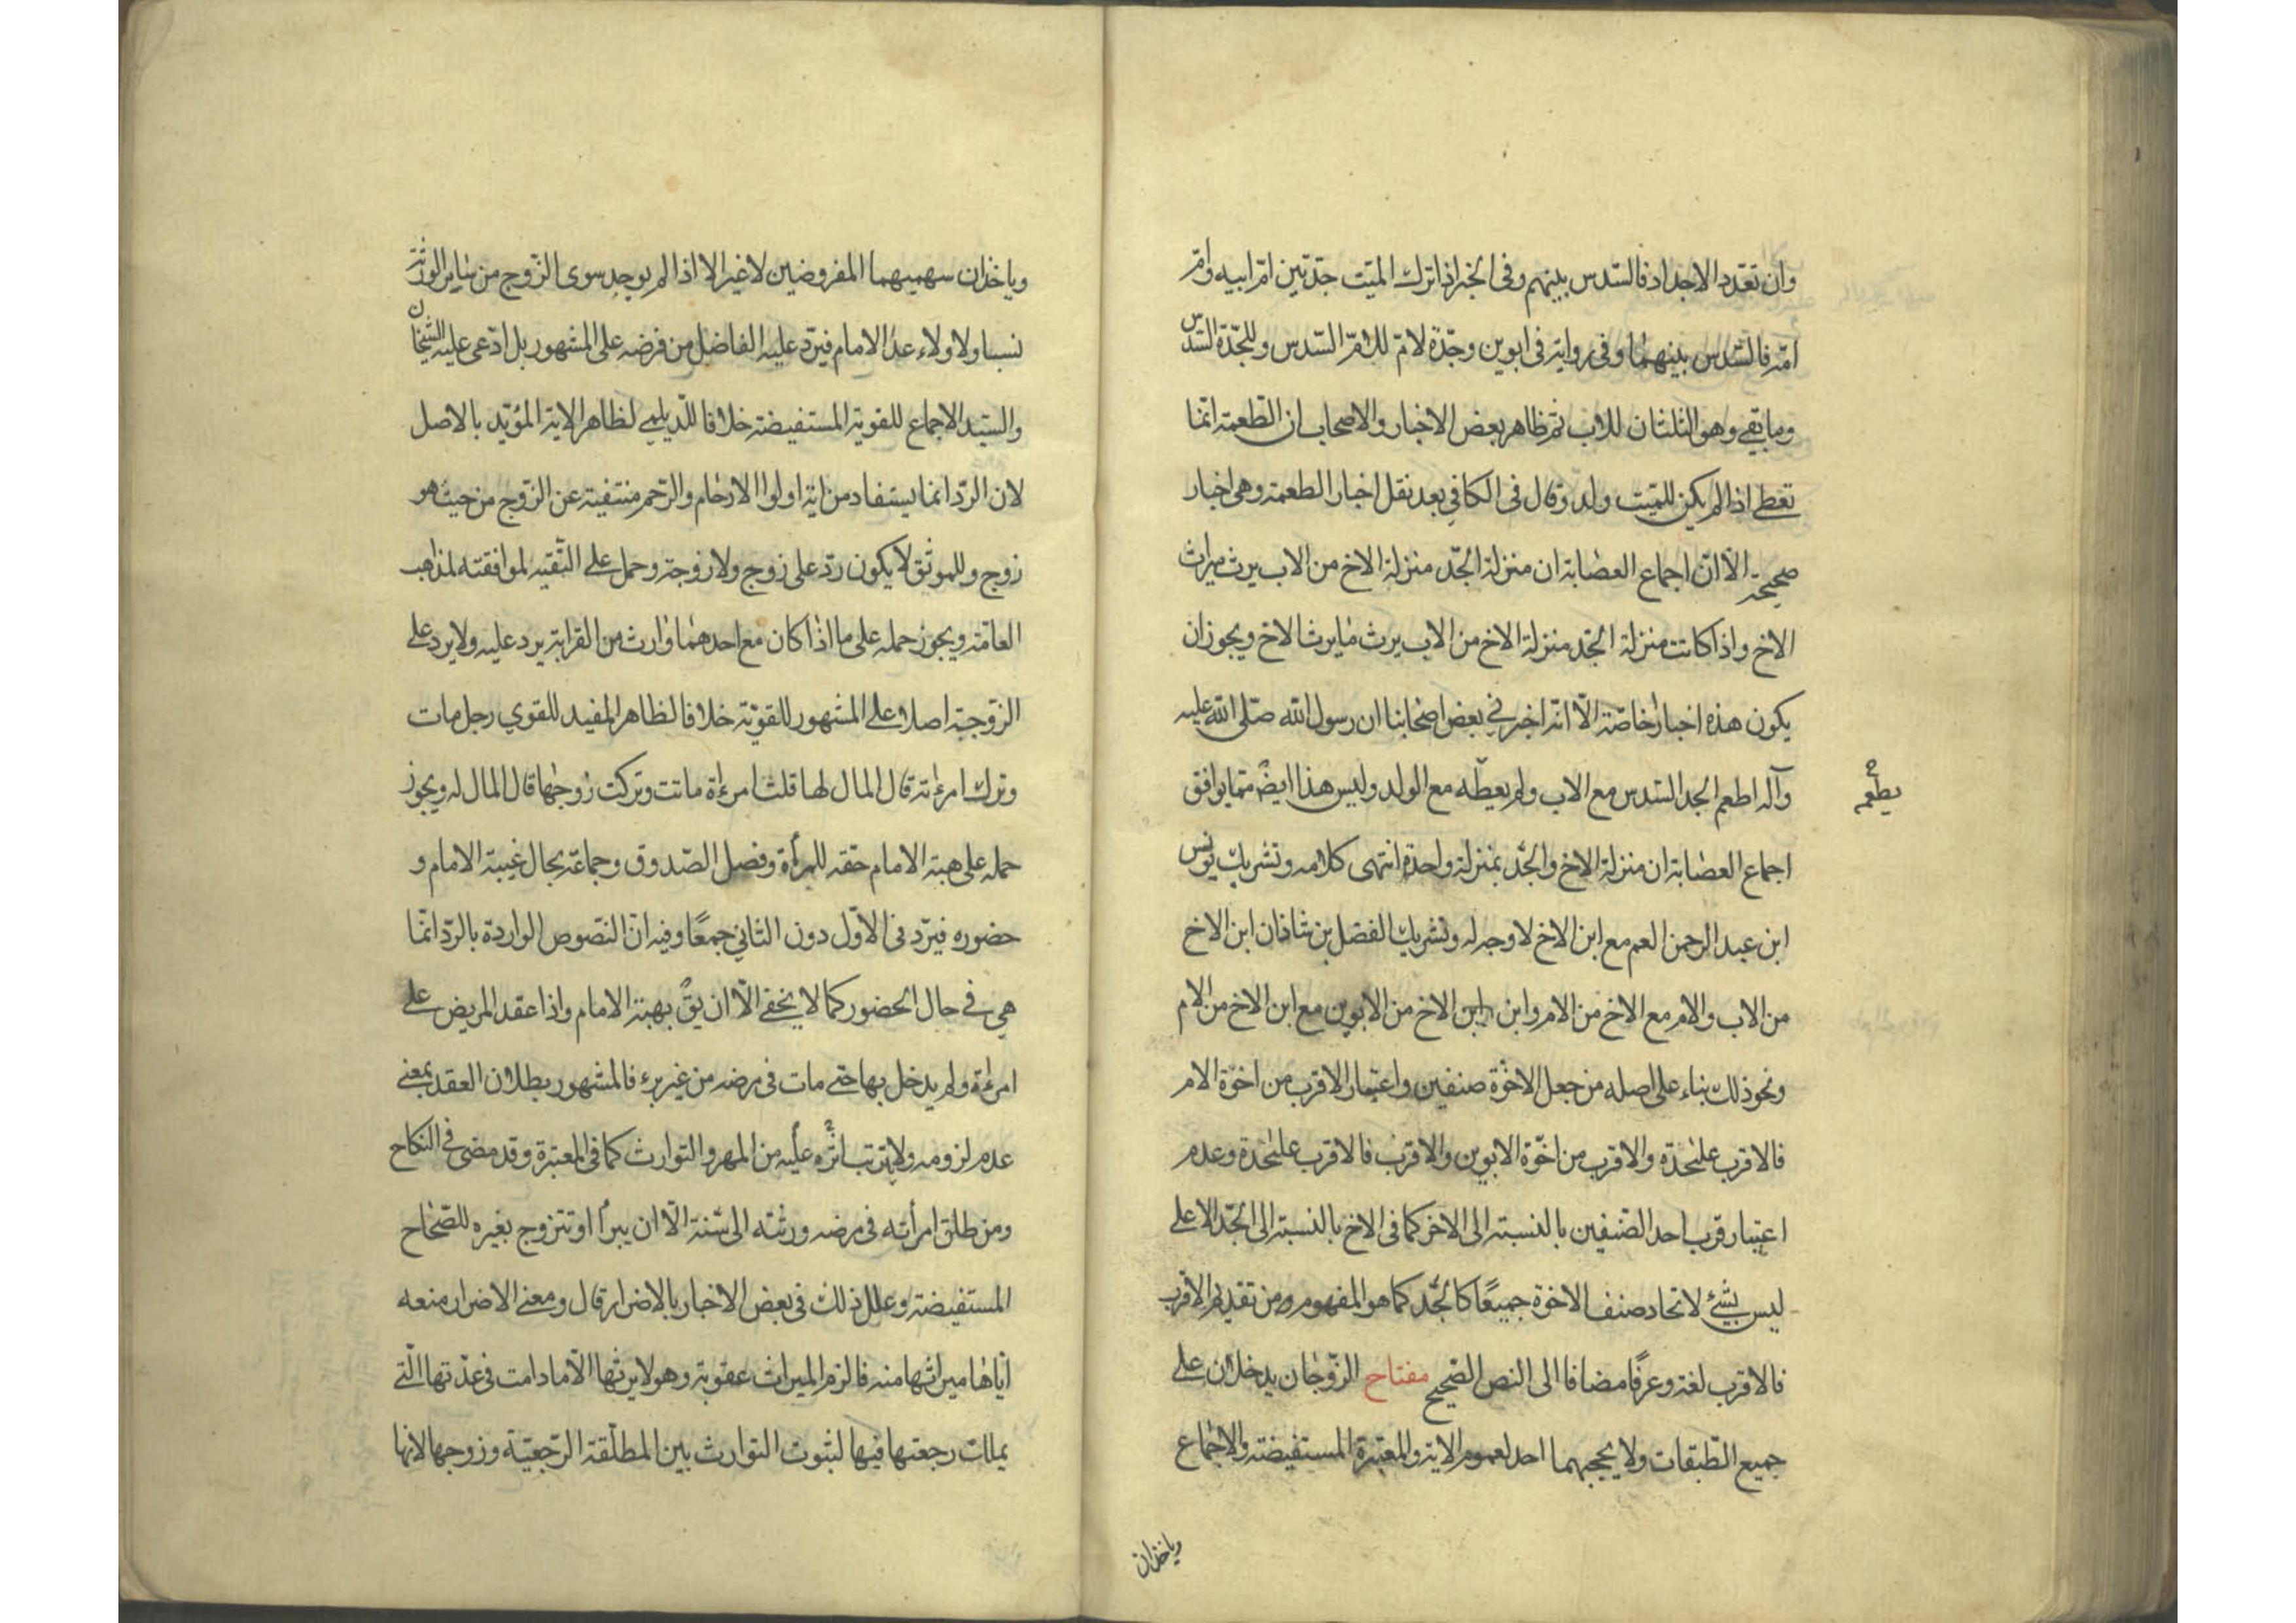 وان تعدد الاجداد فالسّدس بينهم وفى الخبر اذا ترك الميّت جدّتين امّ ابيه وامّ
امّه فالسّدس بينهما وفى رواية فى ابوين وجدّة لامّ للامّ السّدس وللجدّة السّدس
وما بقى وهو الثلثان للاب ثم ظاهر بعض الاخبار والاصحاب ان الطّعمة انّما
تعطى اذا لم يكن للميّت ولد وقال فى الكافى بعد نقل اخبار الطعمة وهى اخبار
صحيحة الّا انّ اجماع العصابة ان منزلة الجدّ منزلة الاخ من الاب يرث ميراث
الاخ واذا كانت منزلة الجدّ منزلة الاخ من الاب يرث ما يرث الاخ ويجوز ان
يكون هذه اخبار خاصّة الّا انّه اخبرنى بعض اصحابنا ان رسول الله صلّى الله عليه
وآله اطعم الجد السّدس مع الاب ولم يعطه مع الولد وليس هذا ايضً ممّا يوافق
يطعمه
اجماع العصابة ان منزلة الاخ والجدّ بمنزلة واحدة انتهى كلامه وتشريك يونس
ابن عبد الرحمن العم مع ابن الاخ لا وجه له وتشريك الفضل بن شاذان ابن الاخ
من الاب والام مع الاخ من الام وابن ابن الاخ من الابوين مع ابن الاخ من الام
ونحو ذلك بناء على اصله من جعل الاخوة صنفين واعتبار الاقرب من اخوة الام
فالاقرب عليحدة والاقرب من اخوّة الابوين والاقرب فالاقرب عليحدة وعدم
اعتبار قرب احد الصّنفين بالنسبة الى الاخر كما فى الاخ بالنسبة الى الجدّ الاعلى
ليس بشئ لاتحاد صنف الاخوة جميعًا كالجدّ كما هو المفهوم ومن تقديم الاقرب
فالاقرب لغة وعرفًا مضافا الى النص الصّحيح مفتاح الزّوجان يدخلان على
جميع الطّبقات ولا يحجبهما احد لعموم الاية والمعتبرة المستفيضة والاجماع
وياخذان
وياخذان سهميهما المفروضين لاغير الا اذا لم يوجد سوى الزّوج من ساير الورثة
نسبا ولا ولاء عدا الامام فيردّ عليه الفاضل من فرضه على المشهور بل ادّعى عليه الشيخان
والسّيّد الاجماع للقوية المستفيضة خلافا للدّيلمى لظاهر الاية المؤيّد بالاصل
لان الردّ انما يستفاد من اية اولوا الارحام والرّحم منتفية عن الزّوج من حيث هو
زوج وللموثق لا يكون ردّ على زوج ولا زوجة وحمل على التّقيّه لموافقته لمذاهب
العامّة ويجوز حمله على ما اذا كان مع احدهما وارث من القرابة يرد عليه ولا يرد على
الزوجة اصلا على المشهور للقويّة خلافا لظاهر المفيد للقوي رجل مات
وترك امرءته قال المال لها قلت امرءة ماتت وتركت زوجها قال المال له ويجوز
حمله على هبة الامام حقه للمرأة وفصل الصّدوق وجماعة بحال غيبة الامام و
حضوره فيردّ فى الاوّل دون الثانى جمعًا وفيه انّ النصّوص الواردة بالردّ انّما
هى فى حال الحضور كما لا يخفى الّا ان يق بهبة الامام واذا عقد المريض على
امرءة ولم يدخل بها حتى مات فى مرضه من غير برء فالمشهور بطلان العقد بمعنى
عدم لزومه ولا يترتب اثره عليه من المهر والتوارث كما فى المعتبرة وقد مضى فى النكاح
ومن طلق امرأته فى مرضه ورثته الى سنة الّا ان يبرأ او تتزوج بغيره للصّحاح
المستفيضة وعلل ذلك فى بعض الاخبار بالاضرار قال ومعنى الاضرار منعه
ايّاها ميراثها منه فالزم الميراث عقوبة وهو لا يرثها الّا ما دامت فى عدّتها الّتى
يملك رجعتها فيها لثبوت التوارث بين المطلّقة الرّجعيّة وزوجها لانها